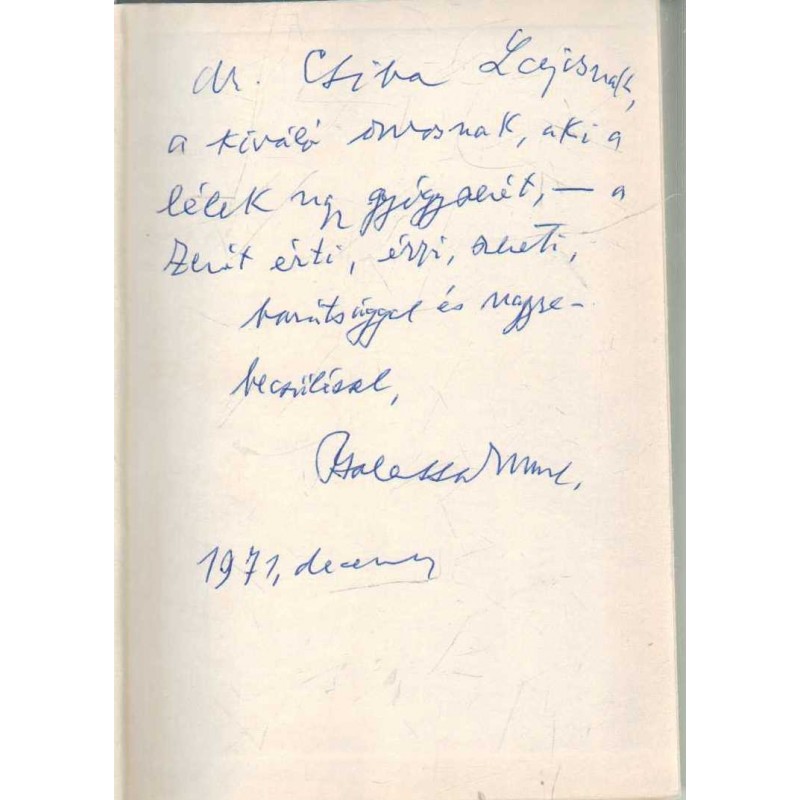 dr. Csiba Lajosnak,
a kiváló orvosnak, aki a
lélek nagy gyógyszerét, — a
zenét érti, érzi, szereti,
barátsággal és nagyra-
becsüléssel,
Balassa Imre.
1971, decemb